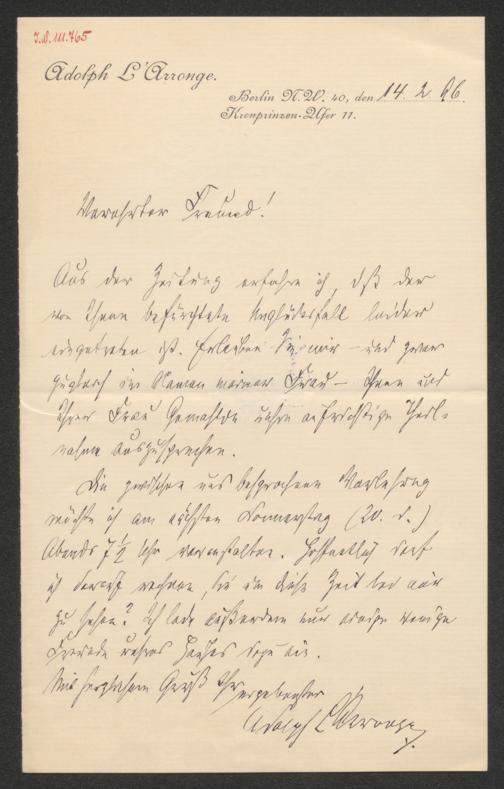 I.N. 111.765
Adolph L'Arronge.
Berlin N.W. 40, den 14. 2. 96.
Kronprinzen-Ufer 11.
Verehrter Freund!
Aus der Zeitung erfahre ich, daß der
von Ihnen befürchtete Unglücksfall leider
eingetreten ist. Erlauben Sie mir – und zwar
zugleich im Namen meiner Frau – Ihnen und
Ihrer Frau Gemahlin unsre aufrichtige Theil-
nahme auszusprechen.
Die zwischen uns besprochene Vorlesung
möchte ich am nächsten Donnerstag (20. d.)
Abends 7½ Uhr veranstalten. Hoffentlich darf
ich darauf rechnen, Sie um diese Zeit bei mir
zu sehen? Ich lade außerdem nur einige wenige
Freunde unsres Hauses dazu ein.
Mit herzlichem Gruß Ihr
ergebenster
Adolph L'Arronge